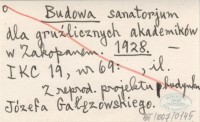 Budowa sanatorjum
dla gruźlicznych akademików
w Zakopanem. 1928. –
IKC 19, nr 69: il.
Z reprod. projektu budynku
Józefa Gałęzowskiego.